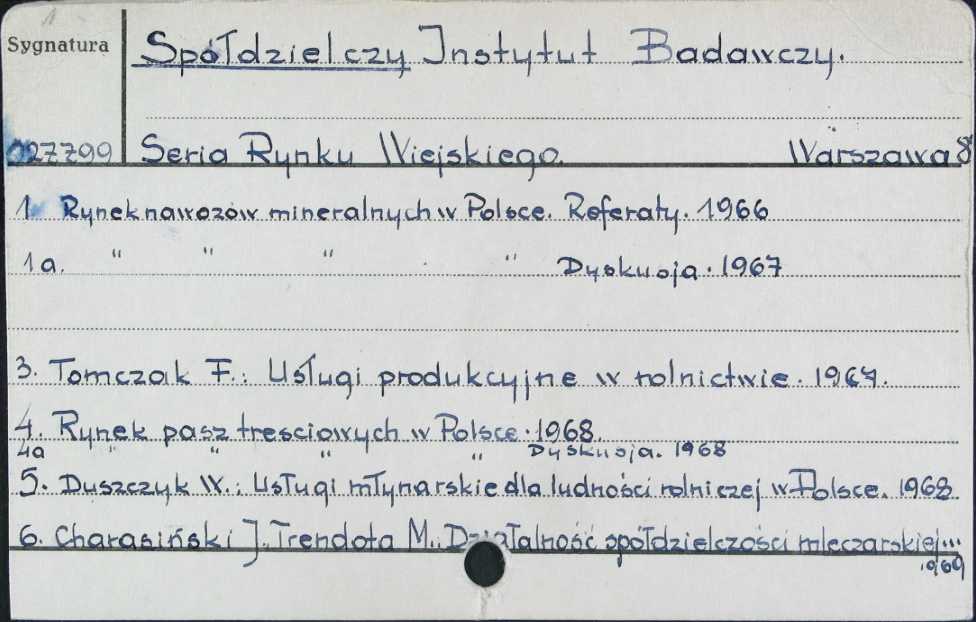 Sygnatura
Spółdzielczy Instytut Badawczy.
027799 Seria Rynku Wiejskiego. Warszawa 8
1. Rynek nawozów mineralnych w Polsce. Referaty. 1966
1a. " " " " Dyskusja. 1967
3. Tomczak F.: Usługi produkcyjne w rolnictwie. 1967.
4. Rynek pasz treściowych w Polsce. 1968.
4a " " " " Dyskusja. 1968
5. Duszczyk W.: Usługi młynarskie dla ludności rolniczej w Polsce. 1968
6. Charasiński J. Trendota M.: Działalność spółdzielczości mleczarskiej...
1969